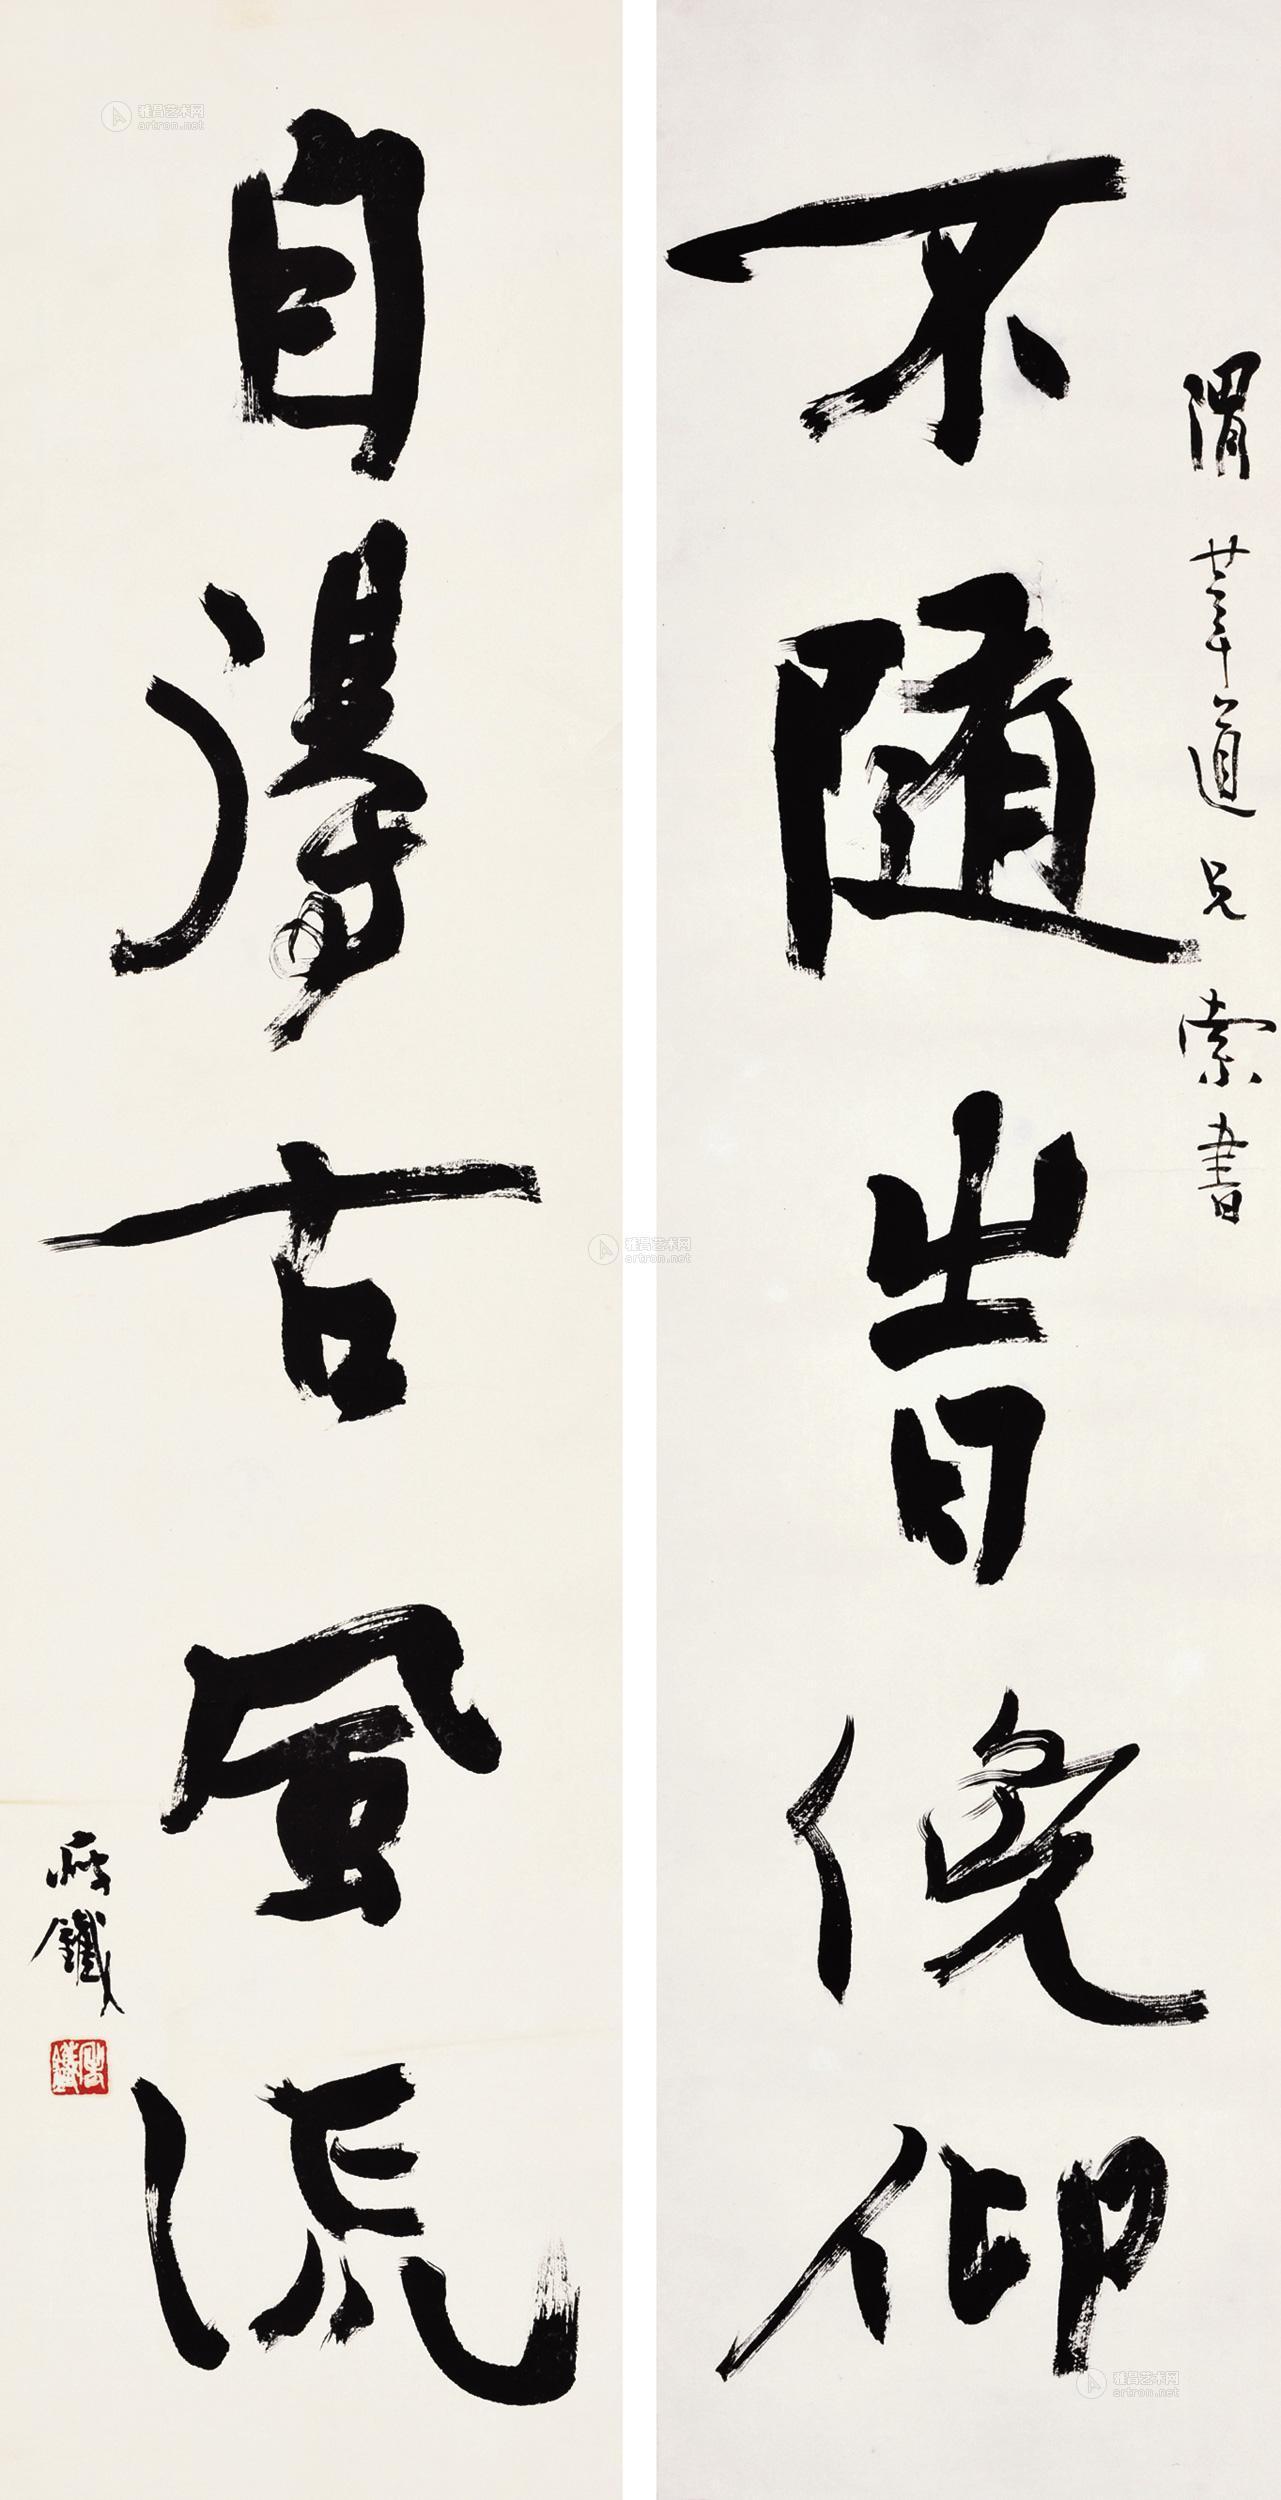 渭華道兄索書
不隨旹俛仰
自得古風流
鐵
雅昌艺术网
artron.net
雅昌艺术网
artron.net
雅昌艺术网
artron.net